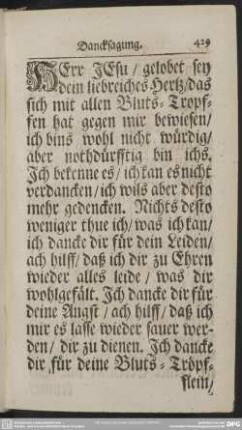 Dancksagung. 429
HErr JEsu / gelobet sey
dein liebreiches Hertz/das
sich mit allen Bluts-Tropf-
fen hat gegen mir bewiesen/
ich bins wohl nicht würdig/
aber nothdürfftig bin ichs.
Ich bekenne es / ich kan es nicht
verdancken/ich wils aber desto
mehr gedencken. Nichts desto
weniger thue ich/was ich kan/
ich dancke dir für dein Leiden/
ach hilff/daß ich dir zu Ehren
wieder alles leide / was dir
wohlgefält. Ich dancke dir für
deine Angst / ach hilff/daß ich
mir es lasse wieder sauer wer-
den/ dir zu dienen. Ich dancke
dir für deine Bluts-Tröpf-
flein/